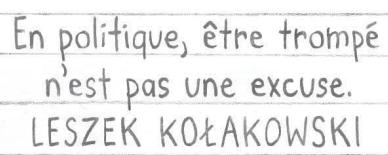 En politique, être trompé
n'est pas une excuse.
LESZEK KOŁAKOWSKI